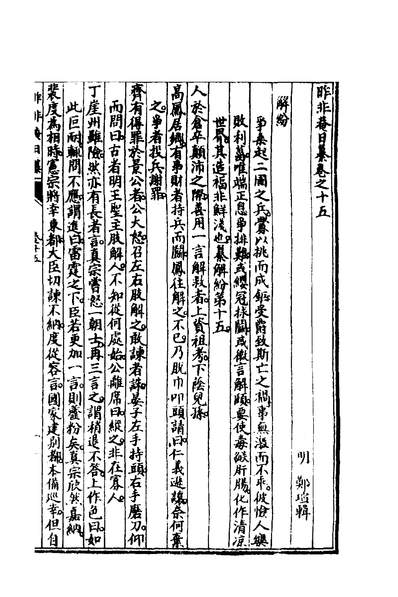 昨非菴日纂卷之十五
明 鄭瑄輯
解紛
爭桑起二國之兵釁以挑而成鉅受爵致斯亡之禍事無濫而不乖彼憸人與
敗利蓋唯端正息爭排難或纓冠救鬬或微言解頤要使毒燄肝腸化作清涼
世界其造福非鮮淺也纂解紛第十五
人於倉卒顛沛之際善用一言解救者上資祖考下蔭兒孫
高鳳居鄰有爭財者持兵而鬬鳳往解之不已乃脫巾叩頭請曰仁義遜讓奈何棄
之爭者投兵謝罪
齊有得罪於景公者公大怒召左右肢解之敢諫者誅晏子左手持頭右手磨刀仰
而問曰古者明王聖主肢解人不知從何處始公離席曰縱之罪在寡人
丁崖州雖險然亦有長者言真宗嘗怒一朝士再三言之謂稍退不答上作色曰如
此叵耐輒問不應謂進曰雷霆之下臣若更加一言則虀粉矣真宗欣然嘉納
裴度為相時憲宗將幸東都大臣切諫不納度從容言國家建別都本備巡幸但自
昨非菴日纂 卷十五